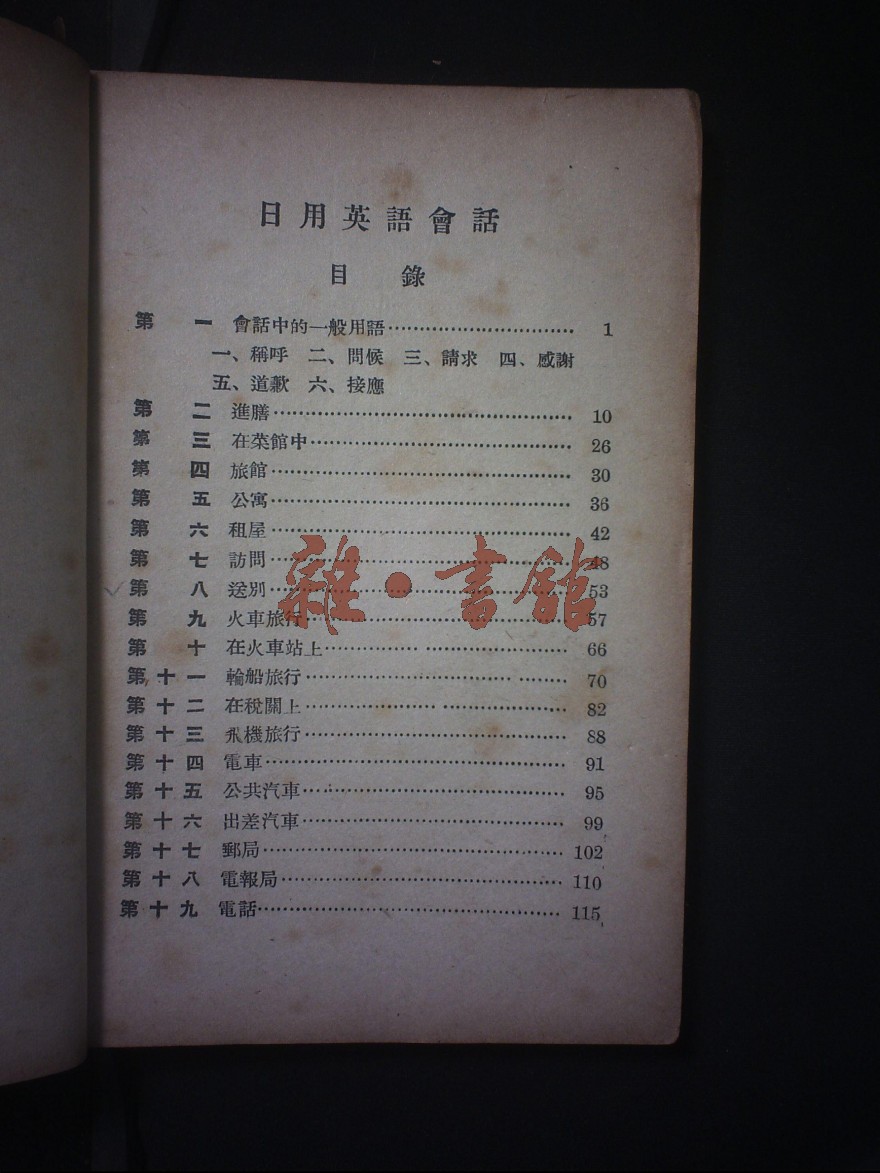 日用英語會話
目 錄
第一 會話中的一般用語 1
一、稱呼 二、問候 三、請求 四、感謝
五、道歉 六、接應
第二 進膳 10
第三 在菜館中 26
第四 旅館 30
第五 公寓 36
第六 租屋 42
第七 訪問 48
第八 送別 53
第九 火車旅行 57
第十 在火車站上 66
第十一 輪船旅行 70
第十二 在稅關上 82
第十三 飛機旅行 88
第十四 電車 91
第十五 公共汽車 95
第十六 出差汽車 99
第十七 郵局 102
第十八 電報局 110
第十九 電話 115
雜·書館